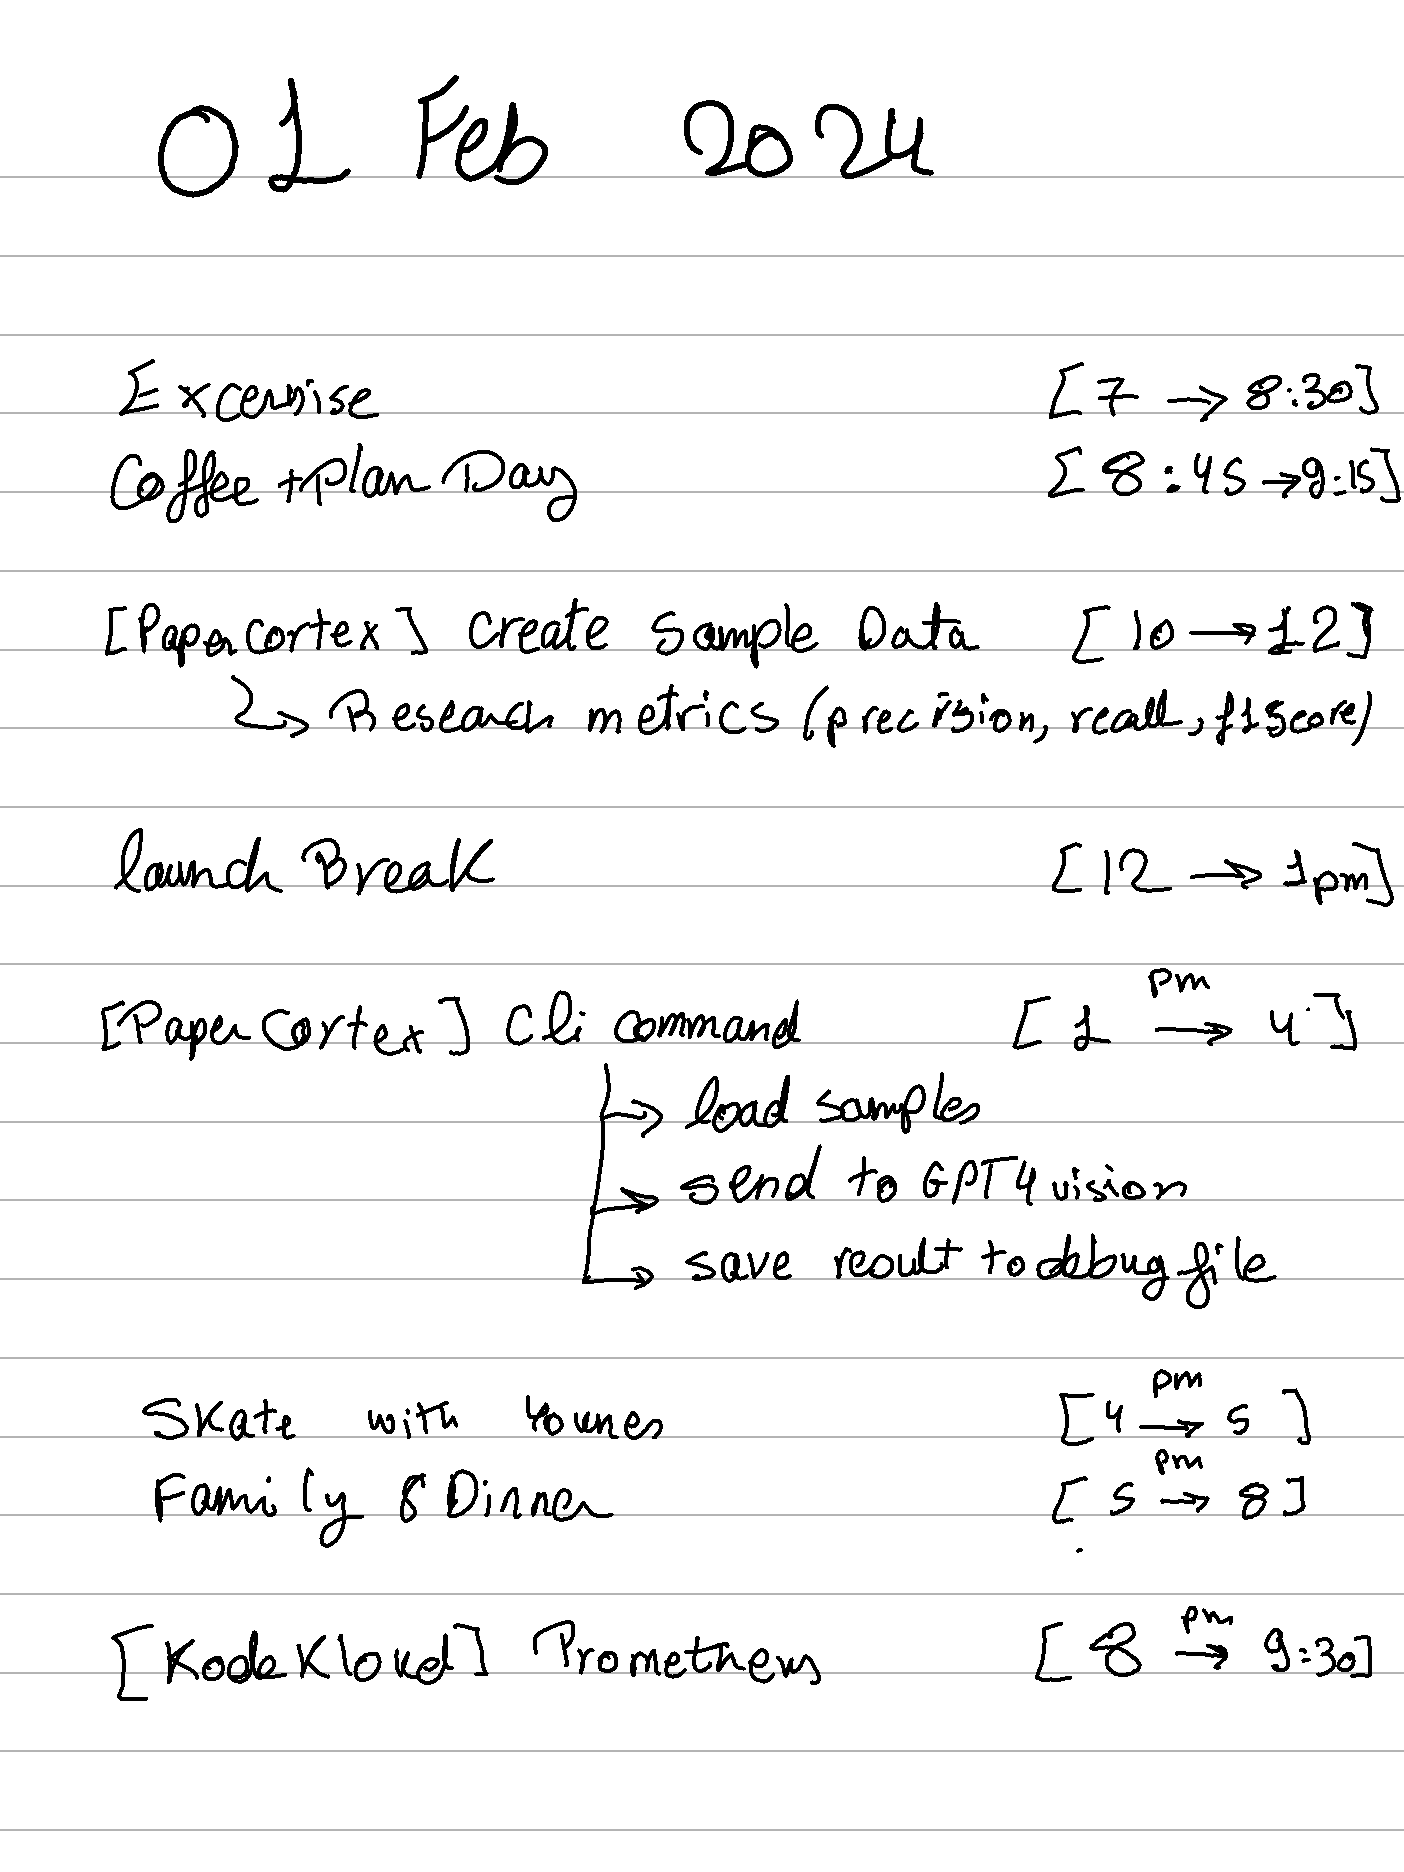 01 Feb 2024
Excercise [7 → 8:30]
Coffee + Plan Day [8:45 → 9:15]
[Papercortex] Create Sample Data [10 → 12]
↳ Research metrics (precision, recall, f1score)
launch Break [12 → 1pm]
[Paper Cortex] Cli command [1 pm → 4]
→ load samples
→ send to GPT4 vision
→ save result to debug file
Skate with Younes [4 pm → 5]
Family & Dinner [5 pm → 8]
[KodeKloud] Prometheus [8 pm → 9:30]